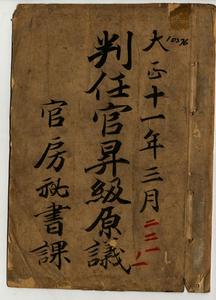 大正十一年三月
判任官昇級原議
官房秘書課